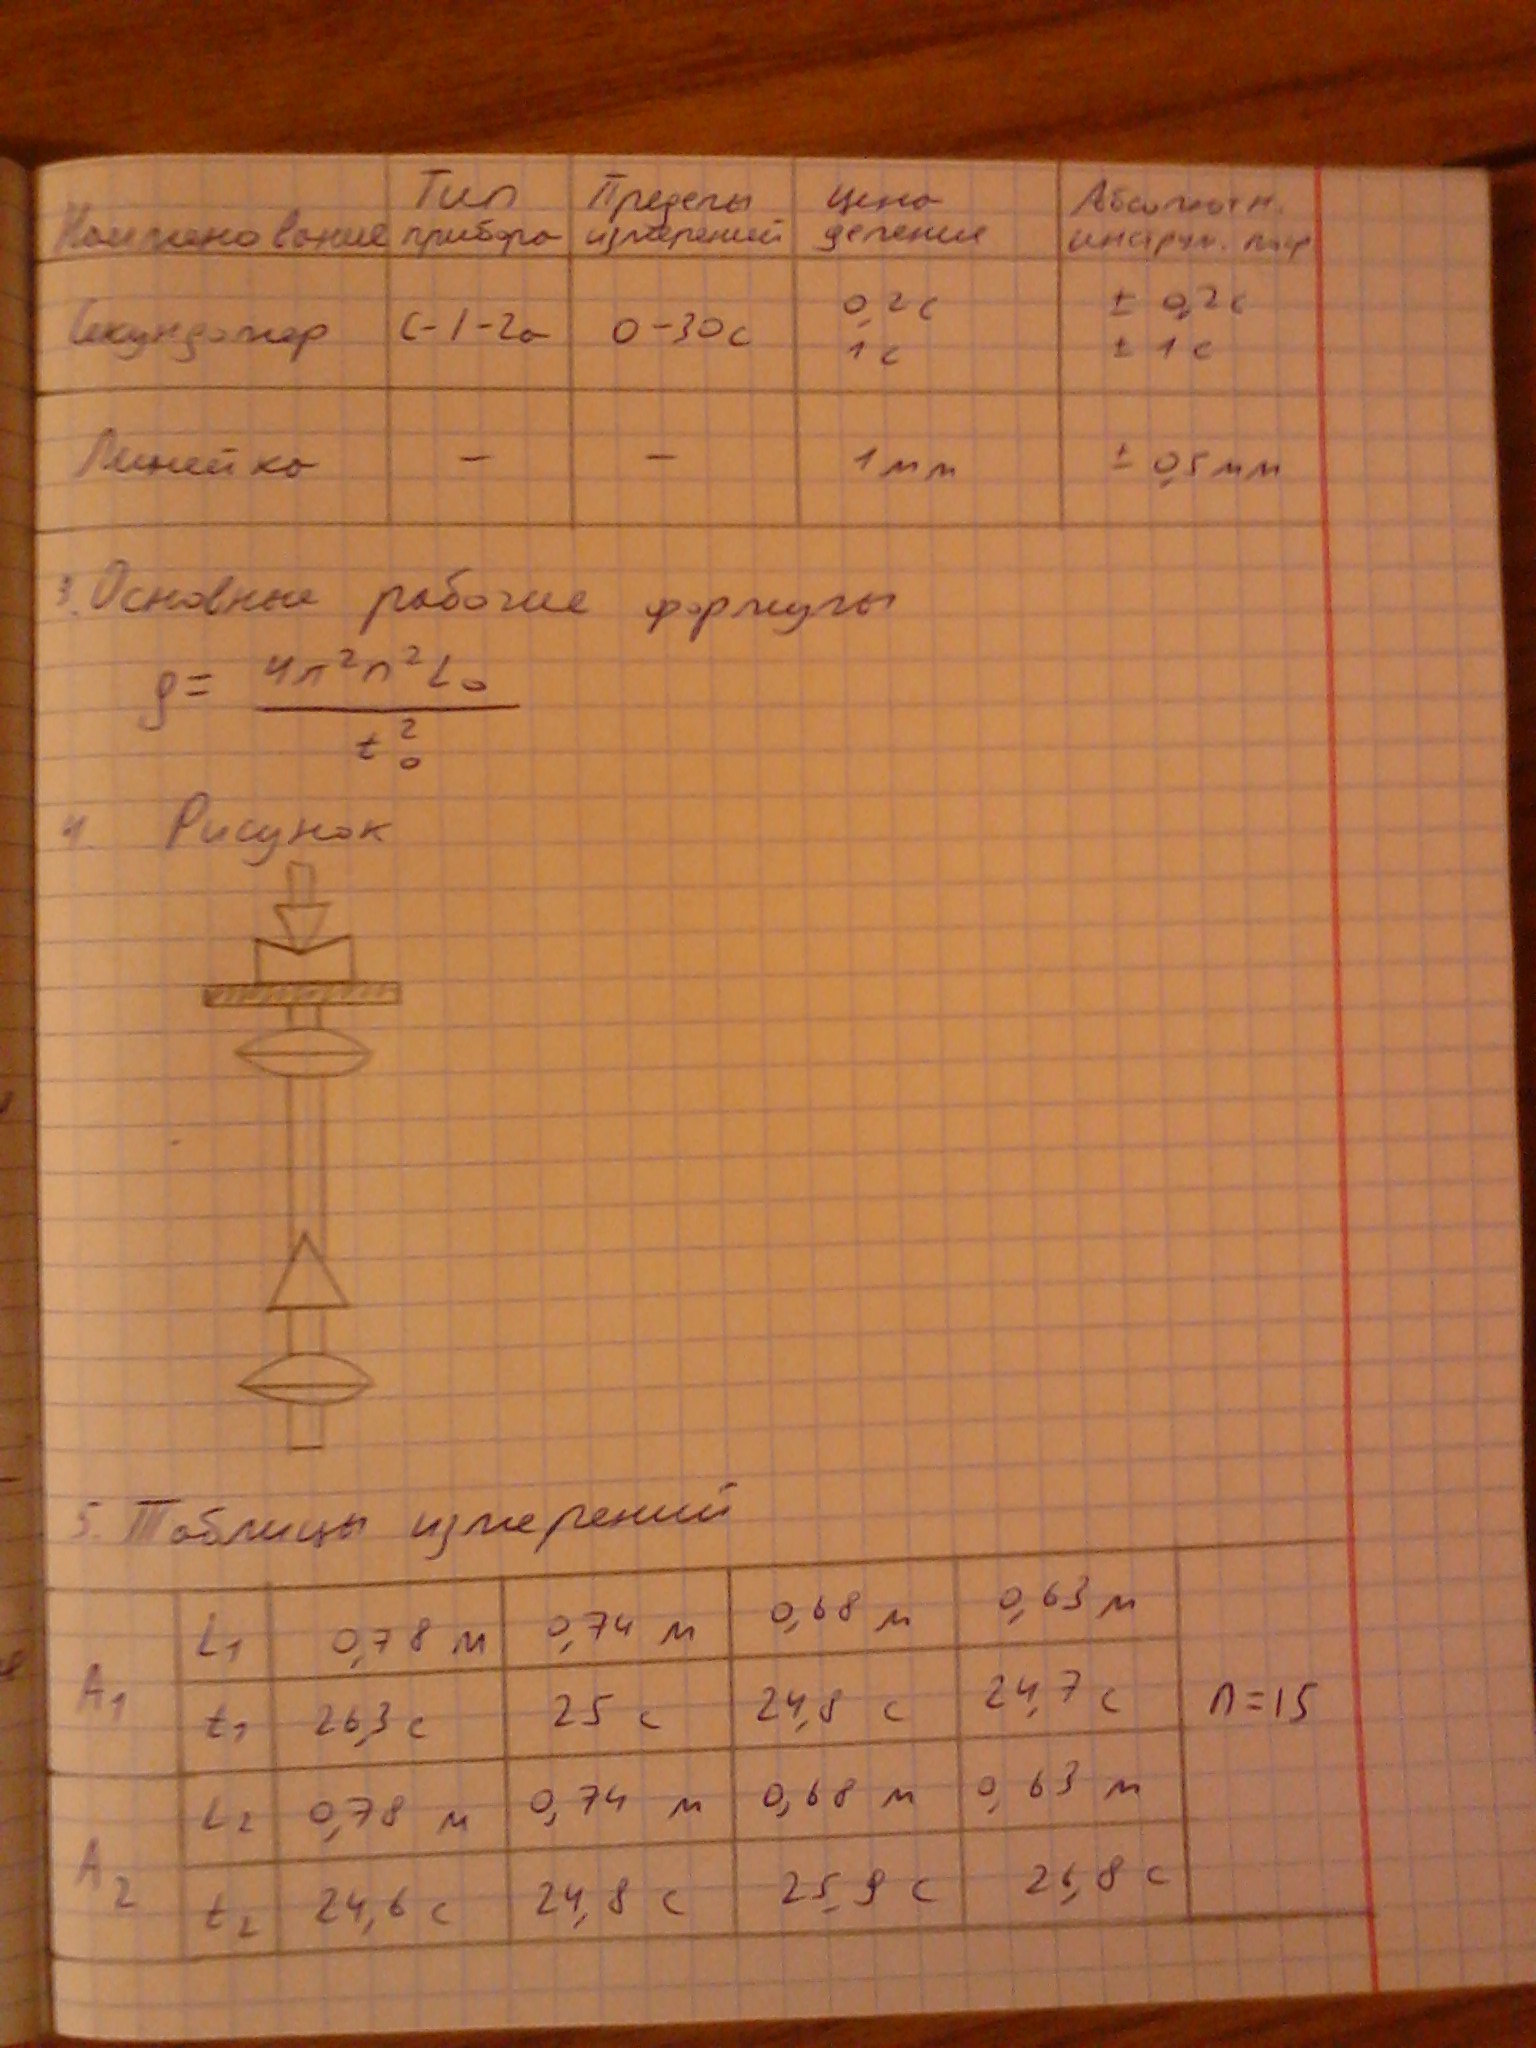 Наименование Тип прибора Пределы измерений Цена деления Абсолютн. инструм. погр
Секундомер С-1-2а 0-30с 0,2с 1с ± 0,2с ± 1с
Линейка – – 1мм ± 0,5мм
3. Основные рабочие формулы
g= 4π²n²L₀ / t₀²
4. Рисунок
5. Таблицы измерений
A₁ L₁ 0,78 м 0,74 м 0,68 м 0,63 м
t₁ 26,3 с 25 с 24,8 с 24,7 с n=15
A₂ L₂ 0,78 м 0,74 м 0,68 м 0,63 м
t₂ 24,6 с 24,8 с 25,9 с 26,8 с